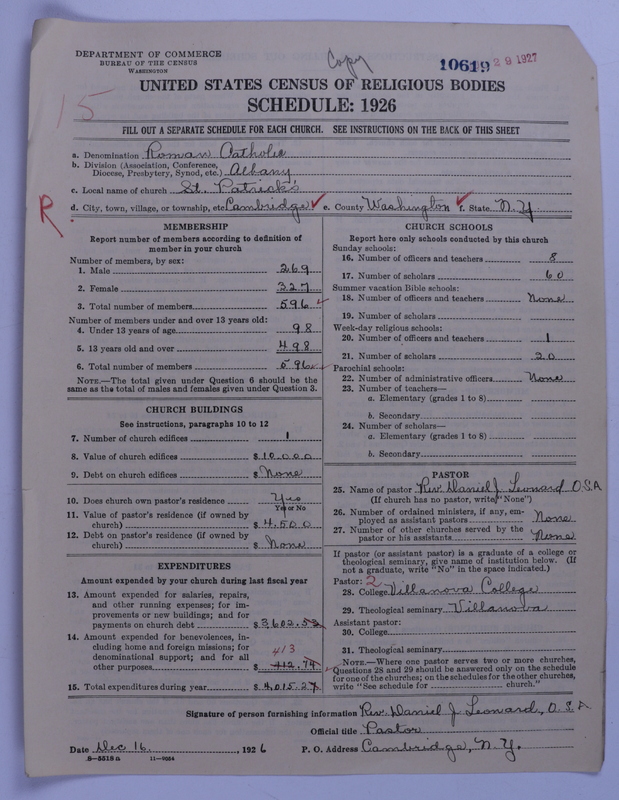 DEPARTMENT OF COMMERCE
BUREAU OF THE CENSUS
WASHINGTON
Copy
10619 29 1927
15
UNITED STATES CENSUS OF RELIGIOUS BODIES
SCHEDULE: 1926
FILL OUT A SEPARATE SCHEDULE FOR EACH CHURCH. SEE INSTRUCTIONS ON THE BACK OF THIS SHEET
a. Denomination Roman Catholic
b. Division (Association, Conference,
Diocese, Presbytery, Synod, etc.) Albany
c. Local name of church St. Patrick's
R. d. City, town, village, or township, etc. Cambridge e. County Washington f. State N.Y.
MEMBERSHIP
Report number of members according to definition of
member in your church
Number of members, by sex:
1. Male 269
2. Female 327
3. Total number of members 596
Number of members under and over 13 years old:
4. Under 13 years of age 98
5. 13 years old and over 498
6. Total number of members 596
NOTE.—The total given under Question 6 should be the
same as the total of males and females given under Question 3.
CHURCH BUILDINGS
See instructions, paragraphs 10 to 12
7. Number of church edifices 1
8. Value of church edifices $10,000
9. Debt on church edifices $ None
10. Does church own pastor's residence Yes
Yes or No
11. Value of pastor's residence (if owned by
church) $4,500
12. Debt on pastor's residence (if owned by
church) $ None
EXPENDITURES
Amount expended by your church during last fiscal year
13. Amount expended for salaries, repairs,
and other running expenses; for im-
provements or new buildings; and for
payments on church debt $3,602.53
14. Amount expended for benevolences, in-
cluding home and foreign missions; for
denominational support; and for all
413
other purposes $412.74
15. Total expenditures during year $4,015.27
CHURCH SCHOOLS
Report here only schools conducted by this church
Sunday schools:
16. Number of officers and teachers 8
17. Number of scholars 60
Summer vacation Bible schools:
18. Number of officers and teachers None
19. Number of scholars
Week-day religious schools:
20. Number of officers and teachers 1
21. Number of scholars 20
Parochial schools:
22. Number of administrative officers None
23. Number of teachers—
a. Elementary (grades 1 to 8)
b. Secondary
24. Number of scholars—
a. Elementary (grades 1 to 8)
b. Secondary
PASTOR
25. Name of pastor Rev. Daniel J. Leonard O.S.A
(If church has no pastor, write "None")
26. Number of ordained ministers, if any, em-
ployed as assistant pastors None
27. Number of other churches served by the
pastor or his assistants None
If pastor (or assistant pastor) is a graduate of a college or
theological seminary, give name of institution below. (If
not a graduate, write "No" in the space indicated.)
Pastor: 2
28. College Villanova College
29. Theological seminary Villanova
Assistant pastor:
30. College
31. Theological seminary
NOTE.—Where one pastor serves two or more churches,
Questions 28 and 29 should be answered only on the schedule
for one of the churches; on the schedules for the other churches,
write "See schedule for church."
Signature of person furnishing information Rev. Daniel J Leonard, O.S.A
Official title Pastor
Date Dec 16, 1926 P. O. Address Cambridge, N.Y.
8-5518a 11-9054